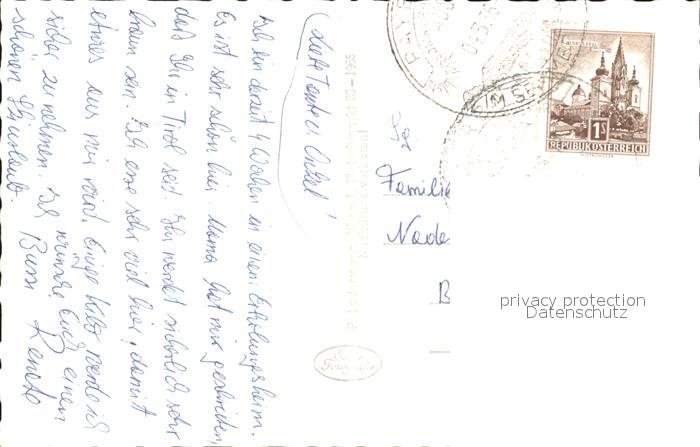 Liebe Tante u. Onkel!
Ich bin derzeit 4 Wochen in einem Erholungsheim.
Es ist sehr schön hier. Mama hat mir geschrieben,
daß Ihr in Tirol seid. Ihr werdet sicherlich sehr
braun sein. Ich esse sehr viel hier, damit
etwas aus mir wird. Einige Kilo werde ich
sicher zunehmen. Ich wünsche Euch einen
schönen Urlaub
Bussi Renate
Familie
Nade
B
IM SE
MARIAZELL
1S
REPUBLIK ÖSTERREICH
Echte
Fotografie
privacy protection
Datenschutz